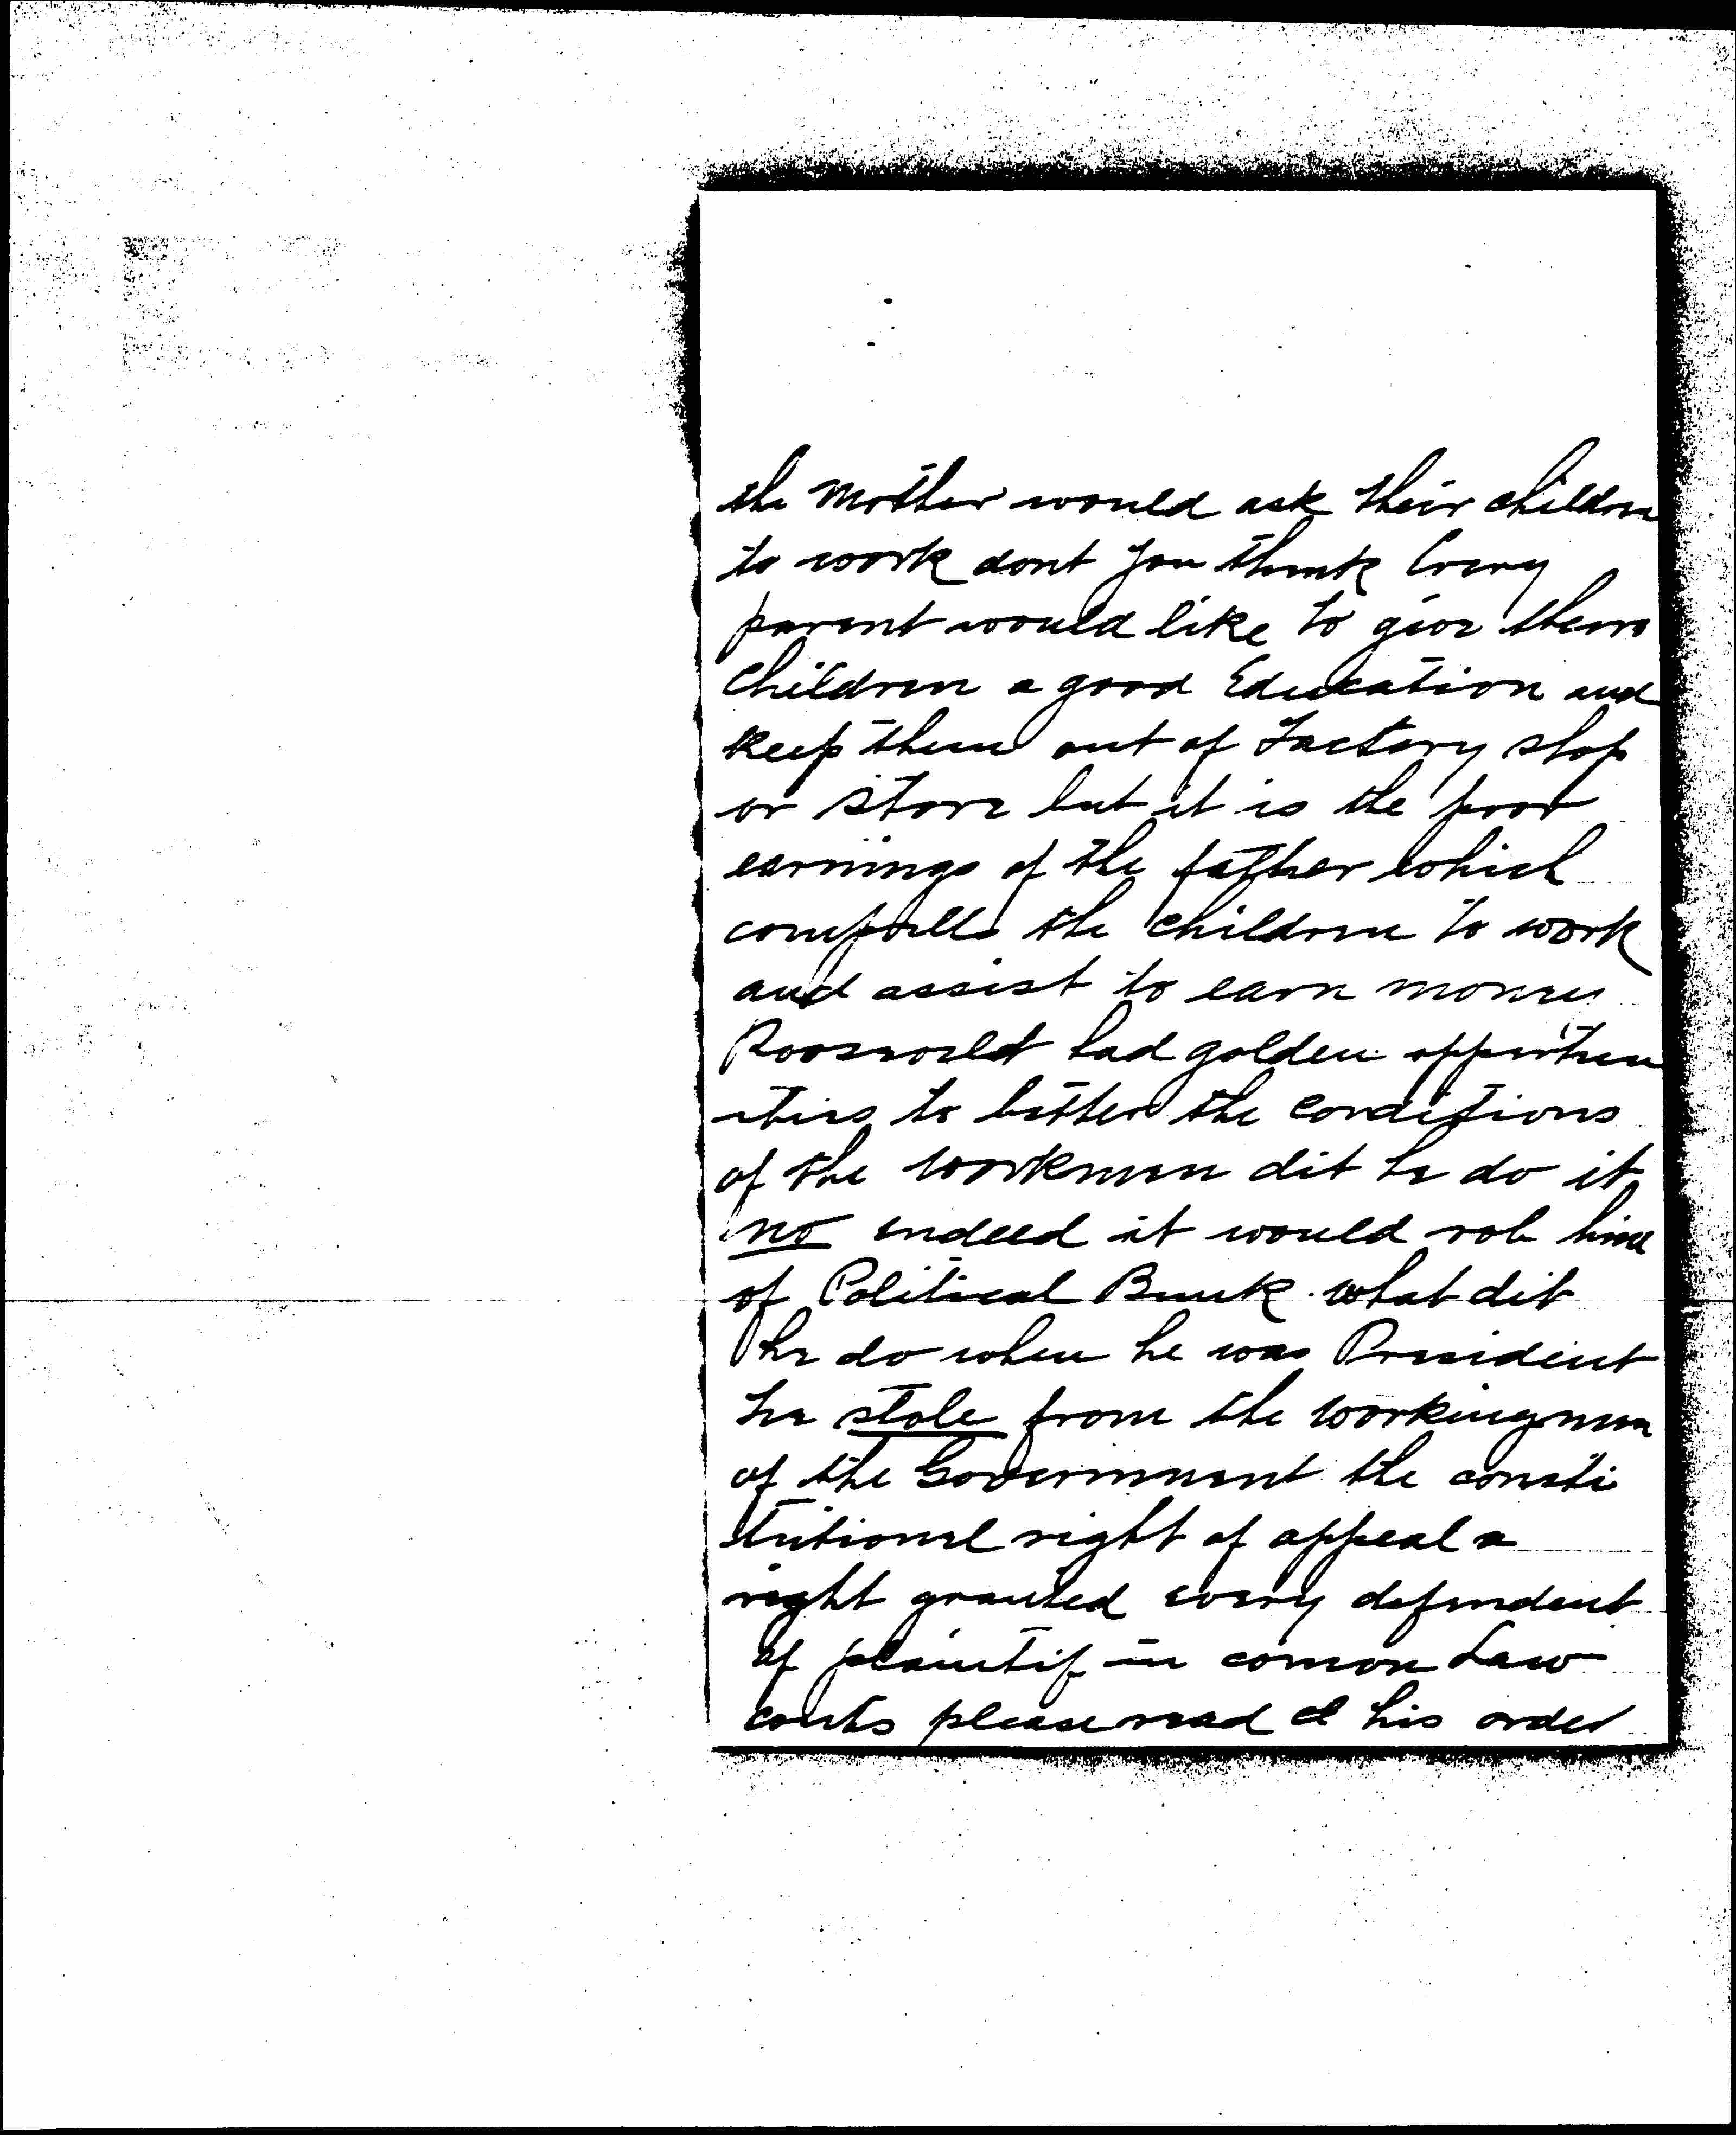 the Mother would ask their children
to work dont you think Every
parent would like to give them
Children a good Education and
keep them out of Factory shop
or store but it is the poor
earnings of the father which
compells the children to work
and assist to earn money
Roosevelt had golden opportun
ities to better the conditions
of the workmen dit he do it
no indeed it would rob him
of Political Bunk. what dit
he do when he was President
he stole from the workingmen
of the Government the consti
tutional right of appeal a
right granted every defendent
of plaintif in comon Law
courts please read his order